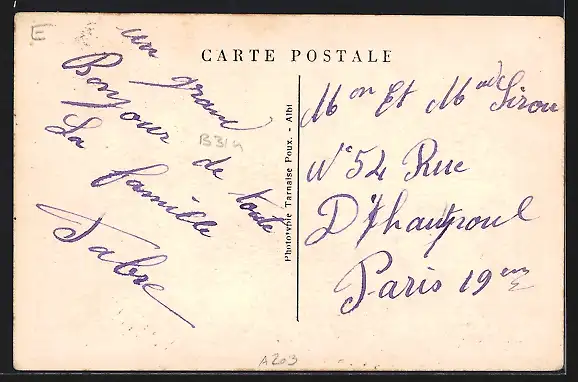 E
CARTE POSTALE
un grand
Bonjour de toute
La famille
Fabre
B314
Phototypie Tarnaise Poux. - Albi
Mon Et Made Sirou
N° 54 Rue
D'Hautpoul
Paris 19em
A203